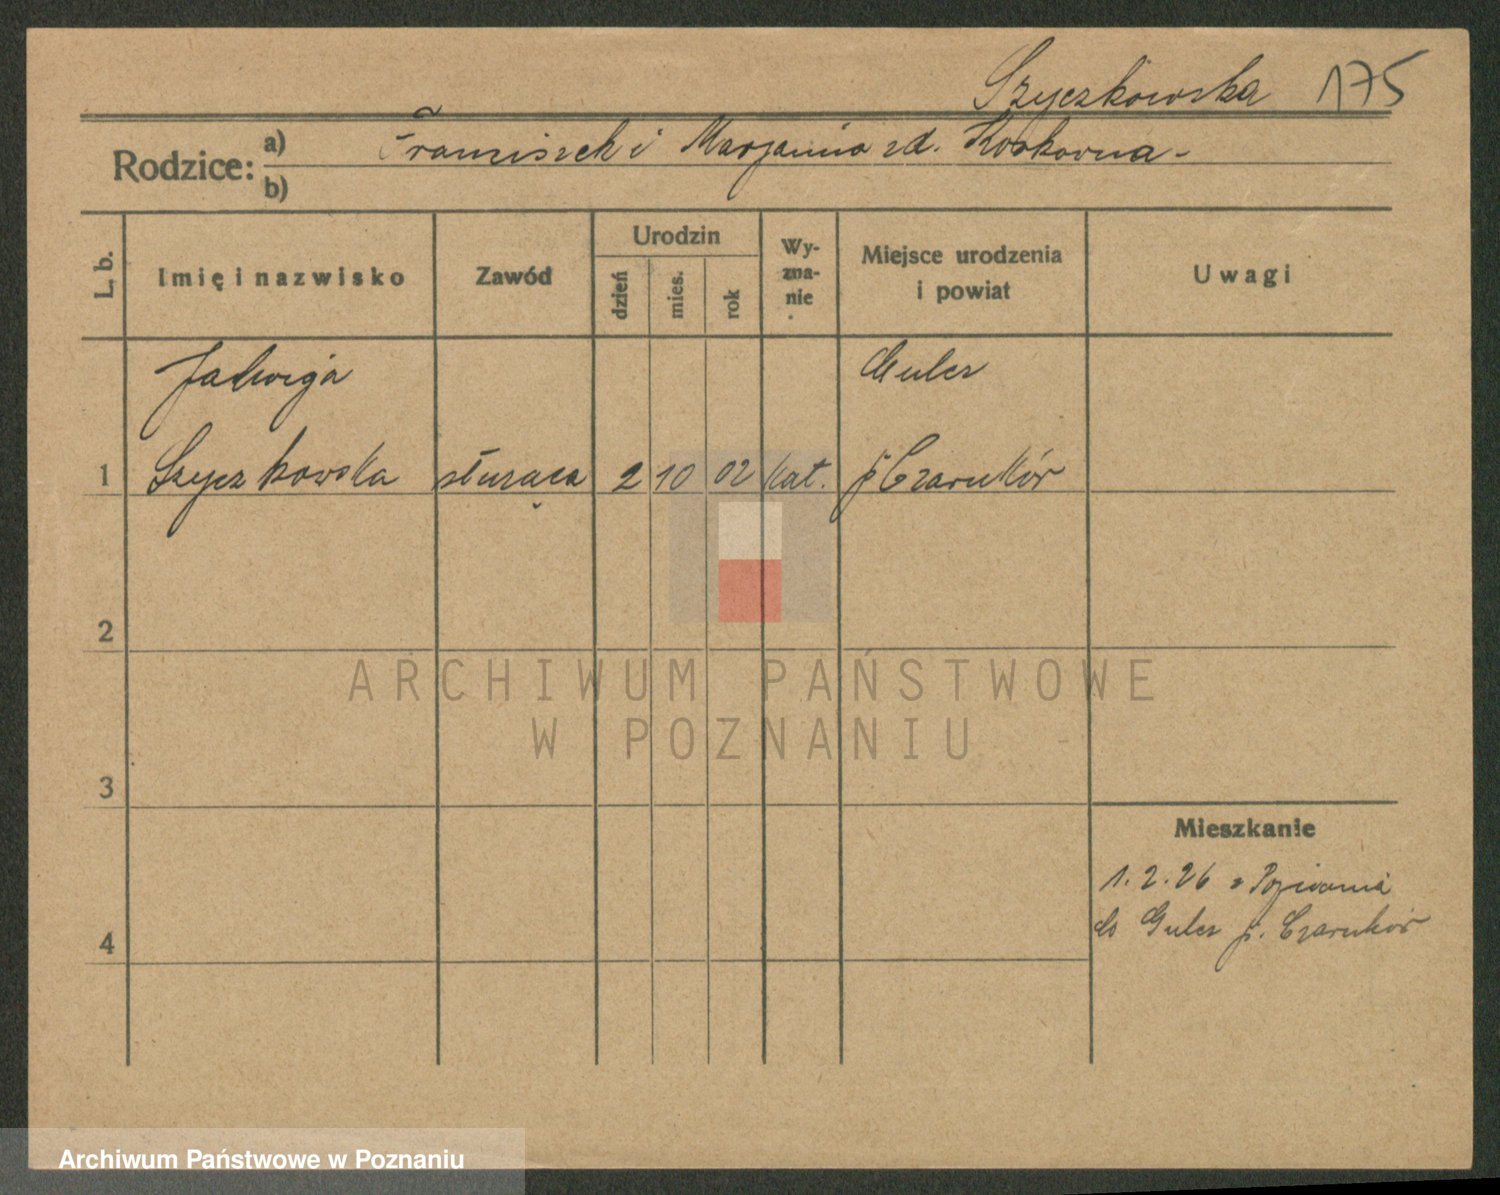 Szyczkowska 175
Rodzice: a) Franciszek i Marjanna zd.
b)
L. b. Imię i nazwisko Zawód Urodzin dzień mies. rok Wy-zna-nie Miejsce urodzenia i powiat Uwagi
Jadwiga Gulcz
1 Szyczkowska służąca 2 10 02 kat. p Czarnków
2
ARCHIWUM PAŃSTWOWE
W POZNANIU
3
Mieszkanie
1.2.26 z Poznania
4 do Gulcz p. Czarnków
Archiwum Państwowe w Poznaniu